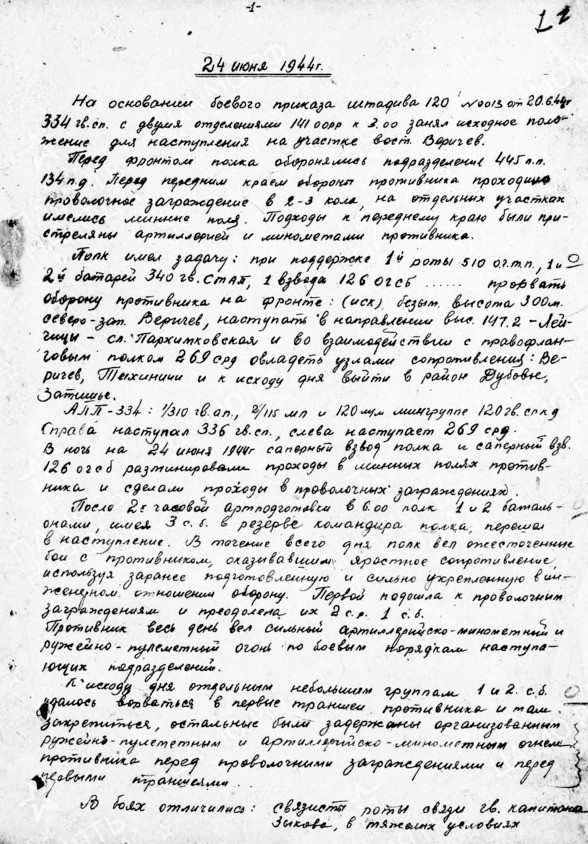 -1-
24 июня 1944г.
На основании боевого приказа штадива 120 №0013 от 20.6.44г
334 гв.сп. с двумя отделениями 141 оорр к 3.00 занял исходное поло-
жение для наступления на участке вост. Веричев.
Перед фронтом полка оборонялись подразделение 445 п.п.
134 п.д. Перед передним краем обороны противника проходило
проволочное заграждение в 2-3 кола, на отдельных участках
имелись минные поля. Подходы к переднему краю были при-
стреляны артиллерией и минометами противника.
Полк имел задачу: при поддержке 1й роты 510 о.г.т.п., 1 и
2й батарей 340 гв. СТАП, 1 взвода 126 ОГСБ ...... прорвать
оборону противника на фронте: (иск) безым. высота 300м.
северо-зап. Веричев, наступать в направлении выс. 147.2 - Лей-
чицы - сл. Пархимковская и во взаимодействии с правофлан-
говым полком 269 срд овладеть узлами сопротивления: Ве-
ричев, Тихиничи и к исходу дня выйти в район Дубовье,
Затишье.
АПП-334: 1/310 гв.ап., 2/115 мп и 120 м/м мингруппе 120 гв. спкд
Справа наступал 336 гв.сп., слева наступает 269 срд.
В ночь на 24 июня 1944г саперный взвод полка и саперный взв.
126 огсб разминировали проходы в минных полях против-
ника и сделали проходы в проволочных заграждениях.
После 2х часовой артподготовки в 6.00 полк 1 и 2 баталь-
онами, имея 3 с.б. в резерве командира полка, перешел
в наступление. В течение всего дня полк вел ожесточенные
бои с противником, оказывавшим яростное сопротивление,
используя заранее подготовленную и сильно укрепленную в ин-
женерном отношении оборону. Первой подошла к проволочным
заграждениям и преодолела их 2 с.р. 1 с.б.
Противник весь день вел сильный артиллерийско-минометный и
ружейно-пулеметный огонь по боевым порядкам наступа-
ющих подразделений.
К исходу дня отдельным небольшим группам 1 и 2 с.б.
удалось ворваться в первые траншеи противника и там
закрепиться, остальные были задержаны организованным
ружейно-пулеметным и артиллерийско-минометным огнем
противника перед проволочными заграждениями и перед
первыми траншеями..
В боях отличились: связисты роты связи гв. капитана
Зыкова, в тяжелых условиях